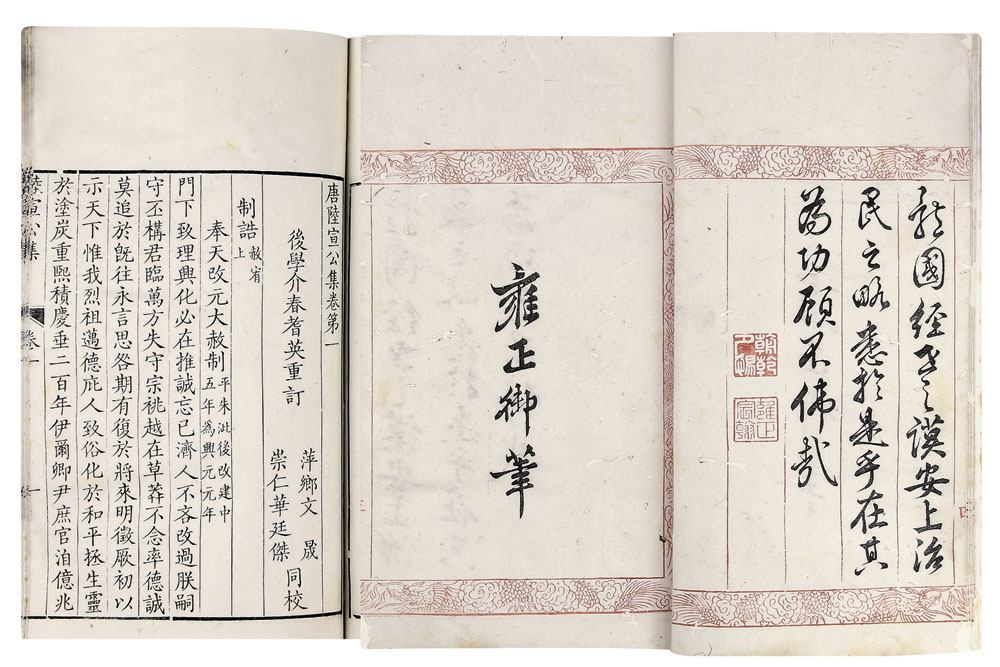 體國經世之謨安上治
民之略悉於是乎在其
為功顧不偉哉
朝乾夕惕
雍正宸翰
雍正御筆
唐陸宣公集卷第一
後學介春耆英重訂
萍鄉文晟
崇仁華廷傑
同校
制誥
赦宥
上
奉天改元大赦制
平朱泚後改建中
五年為興元元年
門下致理興化必在推誠忘已濟人不吝改過朕嗣
守丕構君臨萬方失守宗祧越在草莽不念率德誠
莫追於旣往永言思咎期有復於將來明徵厥初以
示天下惟我烈祖邁德庇人致俗化於和平拯生靈
於塗炭重熙積慶垂二百年伊爾卿尹庶官洎億兆
陸宣公集
卷一